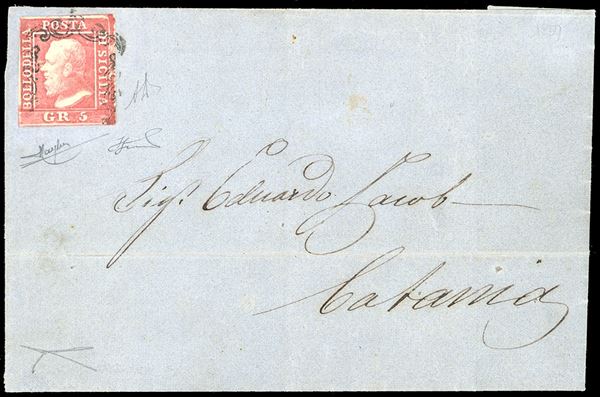 BOLLO DELLA
POSTA
DI SICILIA
GR. 5
Sigr. Eduardo Jacob
Catania